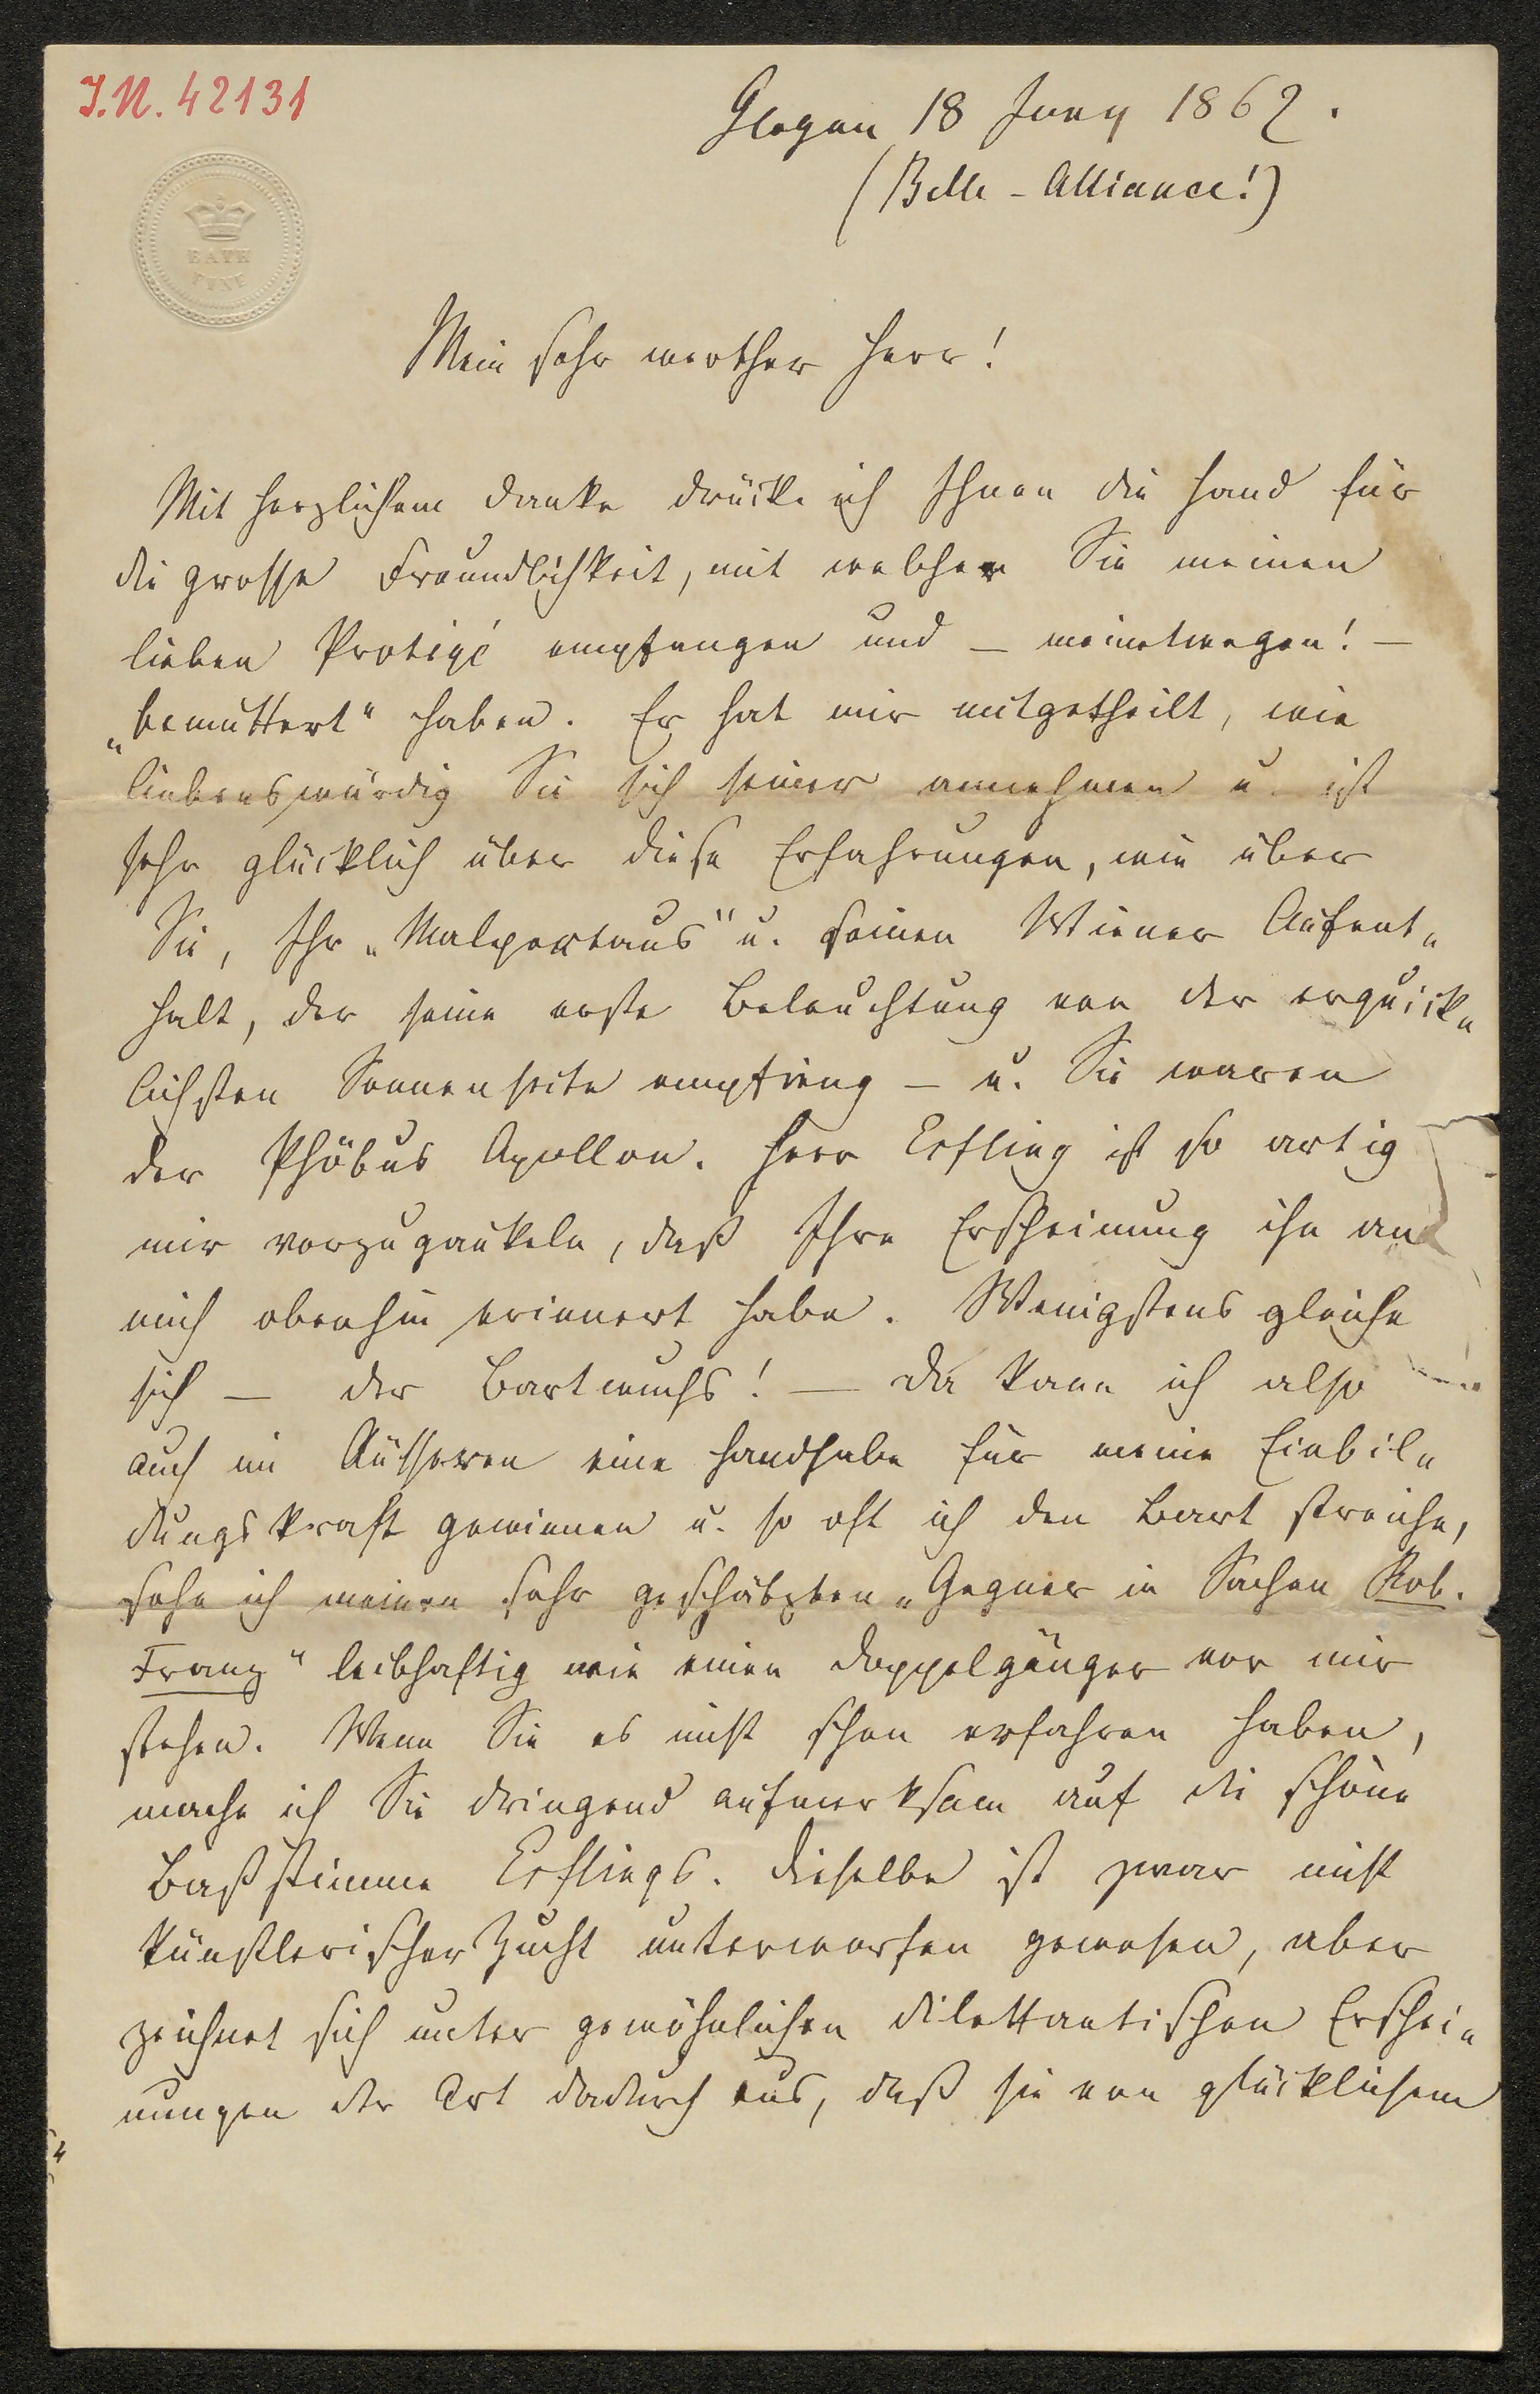 I.N. 42131
Glogau 18 Juny 1862.
(Belle-Alliance!)
BATH
Mein sehr werther Herr!
Mit herzlichem Danke drücke ich Ihnen die Hand für
die grosse Freundlichkeit, mit welcher Sie meinen
lieben Protégé empfangen und — meinetwegen! —
„bemuttert“ haben. Er hat mir mitgetheilt, wie
liebenswürdig Sie sich seiner annehmen u. ist
sehr glücklich über diese Erfahrungen, wie über
Sie, Ihr „Malepartaus“ u. seinen Wiener Aufent-
halt, der seine erste Beleuchtung von der erquick-
lichsten Sonnenseite empfieng — u. Sie waren
der Phöbus Apollon. Herr Esfling ist so artig
mir vorzugaukeln, daß Ihre Erscheinung ihn an
mich obenhin erinnert habe. Wenigstens gleiche
sich — der Bartwuchs! — Da kann ich also
auch im Äußeren eine Handhabe für meine Einbil-
dungskraft gewinnen u. so oft ich den Bart streiche,
sehe ich meinen sehr geschätzten „Gegner in Sachen Rob.
Franz“ leibhaftig wie einen Doppelgänger vor mir
stehen. Wenn Sie es nicht schon erfahren haben,
mache ich Sie dringend aufmerksam auf die schöne
Baßstimme Esflings. Dieselbe ist zwar nicht
künstlerischer Zucht unterworfen gewesen, aber
zeichnet sich unter gewöhnlichen dilettantischen Erschei-
nungen der Art dadurch aus, daß sie von glücklichem